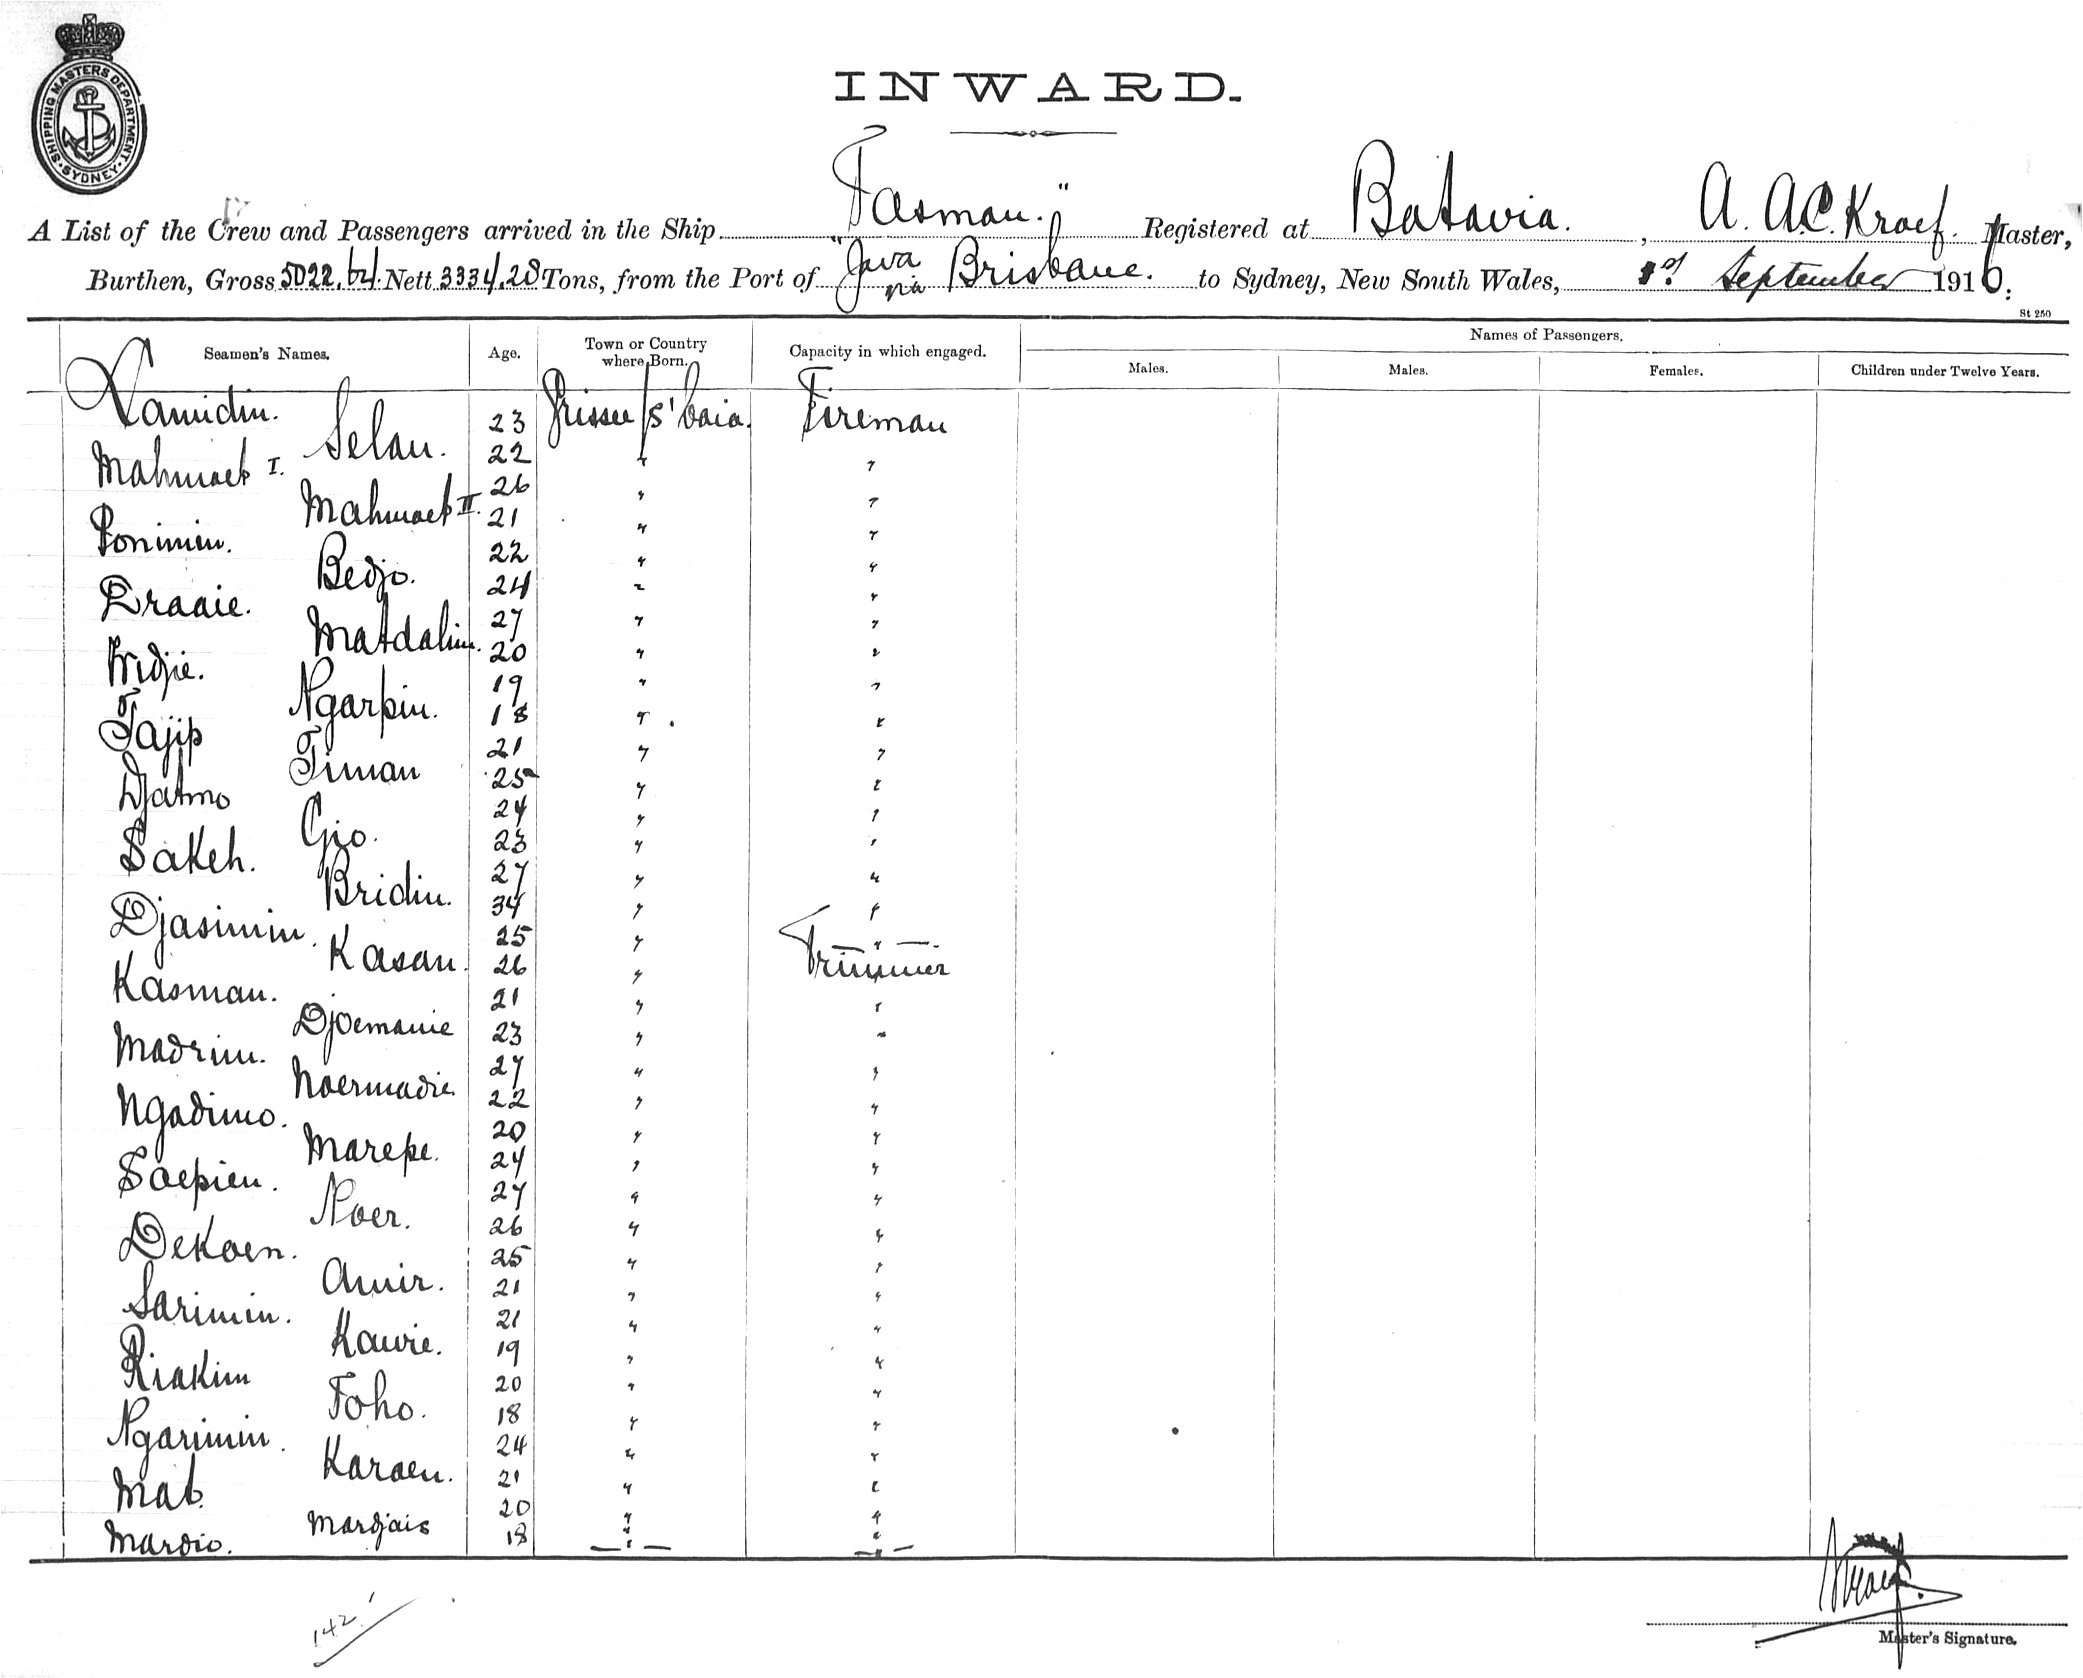 SHIPPING MASTERS DEPARTMENT
SYDNEY
INWARD.
A List of the Crew and Passengers arrived in the Ship "Tasman." Registered at Batavia. , A. A.C. Kroef. Master,
Burthen, Gross 5022.62 Nett 3334.28 Tons, from the Port of Java via Brisbane. to Sydney, New South Wales, 1st September 1916.
St 250
Seamen's Names. Age. Town or Country where Born. Capacity in which engaged. Names of Passengers.
Males. Males. Females. Children under Twelve Years.
Lamidin. 23 Grissee/S'baia. Fireman
Selan. 22 " "
Mahmoet I. 26 " "
Mahmoet II. 21 " "
Ponimin. 22 " "
Bedjo. 24 " "
Draaie. 27 " "
Matdalim. 20 " "
Wridjie. 19 " "
Ngarpin. 18 " "
Tajip 21 " "
Timan 25 " "
Djatmo 24 " "
Gio. 23 " "
Sakeh. 27 " "
Bridin. 34 " "
Djasimin. 25 " "
Kasan. 26 " Trimmer
Kasman. 21 " "
Djoemanie 23 " "
Madrim. 27 " "
Noermadie 22 " "
Ngadimo. 20 " "
Marepe. 24 " "
Soepien. 27 " "
Noer. 26 " "
Dekoen. 25 " "
Amir. 21 " "
Sarimin. 21 " "
Kawie. 19 " "
Riakim 20 " "
Toho. 18 " "
Ngarimin. 24 " "
Karaen. 21 " "
Mat. 20 " "
Mardjais 18 " "
Mardio.
142
Master's Signature.